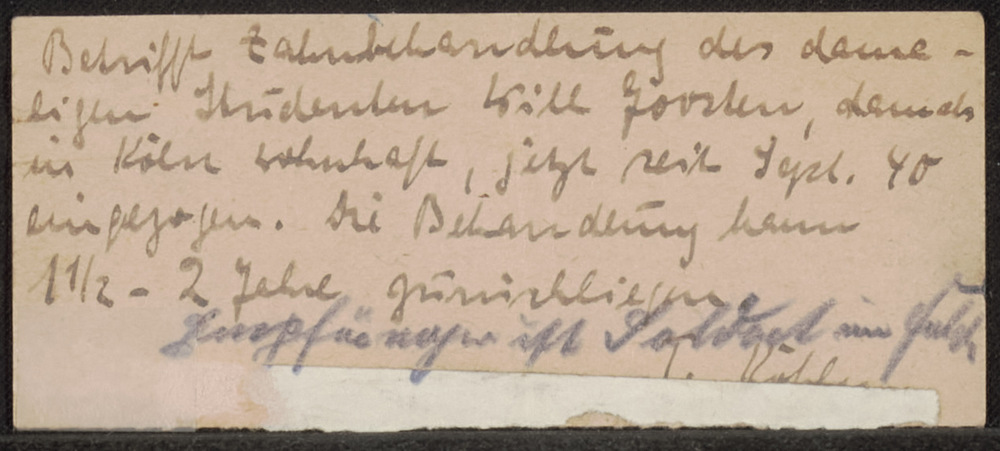 Betrifft Zahnbehandlung des dama-
ligen Studenten Will Joosten, damals
in Köln wohnhaft, jetzt seit Sept. 40
eingezogen. Die Behandlung kann
1 1/2 - 2 Jahre zurückliegen.
Empfänger ist Soldat im Felde